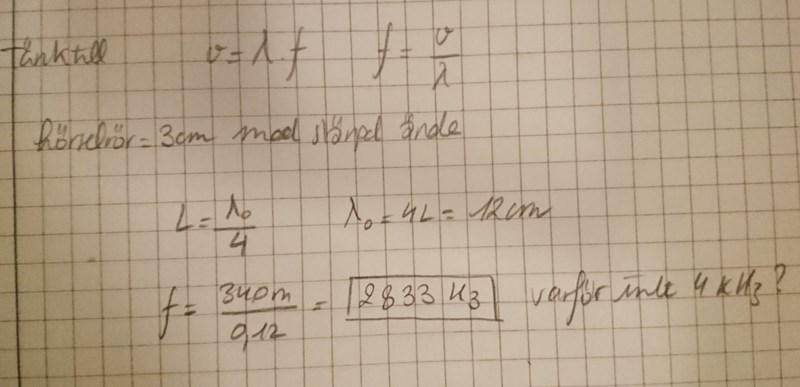 Tänk till v = λ · f f = v/λ
hörselrör = 3cm med stängd ände
L = λ₀/4 λ₀ = 4L = 12cm
f = 340m/0,12 = 2833 Hz varför inte 4 kHz?